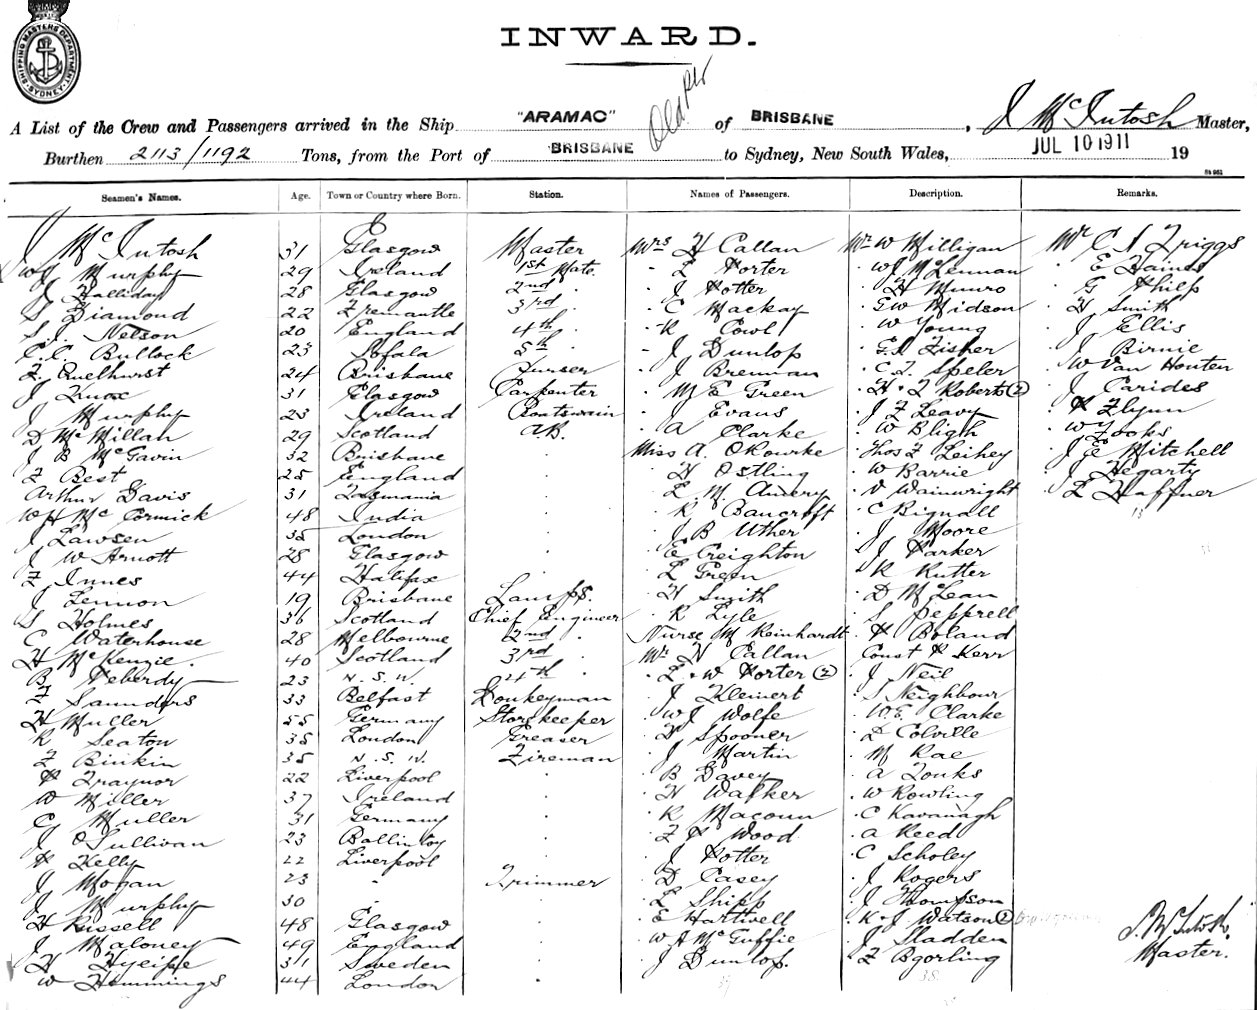 SHIPPING MASTERS DEPARTMENT SYDNEY
INWARD.
A List of the Crew and Passengers arrived in the Ship "ARAMAC" of BRISBANE, J McIntosh Master,
Burthen 2113/1192 Tons, from the Port of BRISBANE to Sydney, New South Wales, JUL 10 1911 19
Seamen's Names. Age. Town or Country where Born. Station. Names of Passengers. Description. Remarks.
J McIntosh 31 Glasgow Master Mrs H Callan Mr W Milligan Mr C S Triggs
W J Murphy 29 Ireland 1st Mate " L Porter " W J McLennan " E Haines
J Halliday 28 Glasgow 2nd " " J Potter " H Munro " G Philp
S Diamond 22 Fremantle 3rd " " C Mackay " G W Midson " H Smith
S. J. Nelson 20 England 4th " " R Cowl " W Young " J Ellis
C. C. Bullock 23 Sofala 5th " " J Dunlop " G. S Fisher " J Birnie
F. Quelhurst 24 Brisbane Purser " J Brennan " C. L. Speler " W Van Houten
J Knox 31 Glasgow Carpenter " M E Green " H & L Roberts (2) " J Carides
J Murphy 23 Ireland Boatswain " J Evans " J F Leavy " P Flynn
D McMillan 29 Scotland A.B. " A Clarke " W Bligh " W Fooks
J B McGavin 32 Brisbane " Miss A. O'Rourke " Thos F Leihey " J E Mitchell
F Best 25 England " " H Ostling " W Barrie " J Hegarty
Arthur Davis 31 Tasmania " " L M " V Wainwright " L Haffner
W H McCormick 48 India " " R Bancroft " C Bignall
J Lawsen 35 London " " J B Uther " J Moore
J W Arnott 28 Glasgow " " E Creighton " J Parker
F Innes 44 Halifax " " L Green " R Rutter
J Lennon 19 Brisbane Lamps. " H Smith " D McLean
S Holmes 36 Scotland Chief Engineer " R Lyle " S Pepprell
C Waterhouse 28 Melbourne 2nd " " Nurse M Reinhardt " P Boland
H McKenzie 40 Scotland 3rd " Mr H Callan " Const P Kerr
B Peberdy 23 N.S.W. 4th " " L & W Porter (2) " J Neil
F Saunders 33 Belfast Donkeyman " J Kleinert " S Neighbour
H Muller 55 Germany Storekeeper " W J Wolfe " W. E. Clarke
R Seaton 35 London Greaser " H Spooner " L Colville
F Binkin 35 N.S.W. Fireman " J Martin " M Rae
P Traynor 22 Liverpool " " B Davey " A Tonks
W Miller 37 Ireland " " H Walker " W Rowling
G Muller 31 Germany " " R Macoun " C Kavanagh
J O'Sullivan 23 Ballintoy " " F P Wood " A Reed
P Kelly 22 Liverpool " " J Potter " C Scholey
J Mogan 23 " Trimmer " D Casey " J Rogers
J Murphy 30 " " " L Shipp " J Thompson
H Rissell 48 Glasgow " " E Hartwell " K & J Watson (2)
J Maloney 49 England " " W A McGuffie " J Sladden J. McIntosh.
H 31 Sweden " " J Dunlop. " F Bgorling Master.
W Hemmings 44 London "